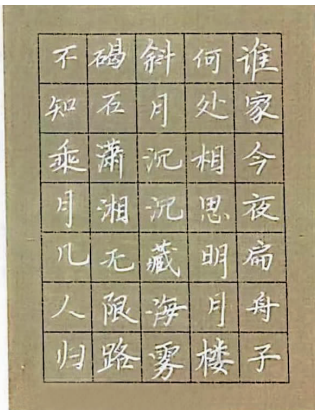 谁家今夜扁舟子
何处相思明月楼
斜月沉沉藏海雾
碣石潇湘无限路
不知乘月几人归